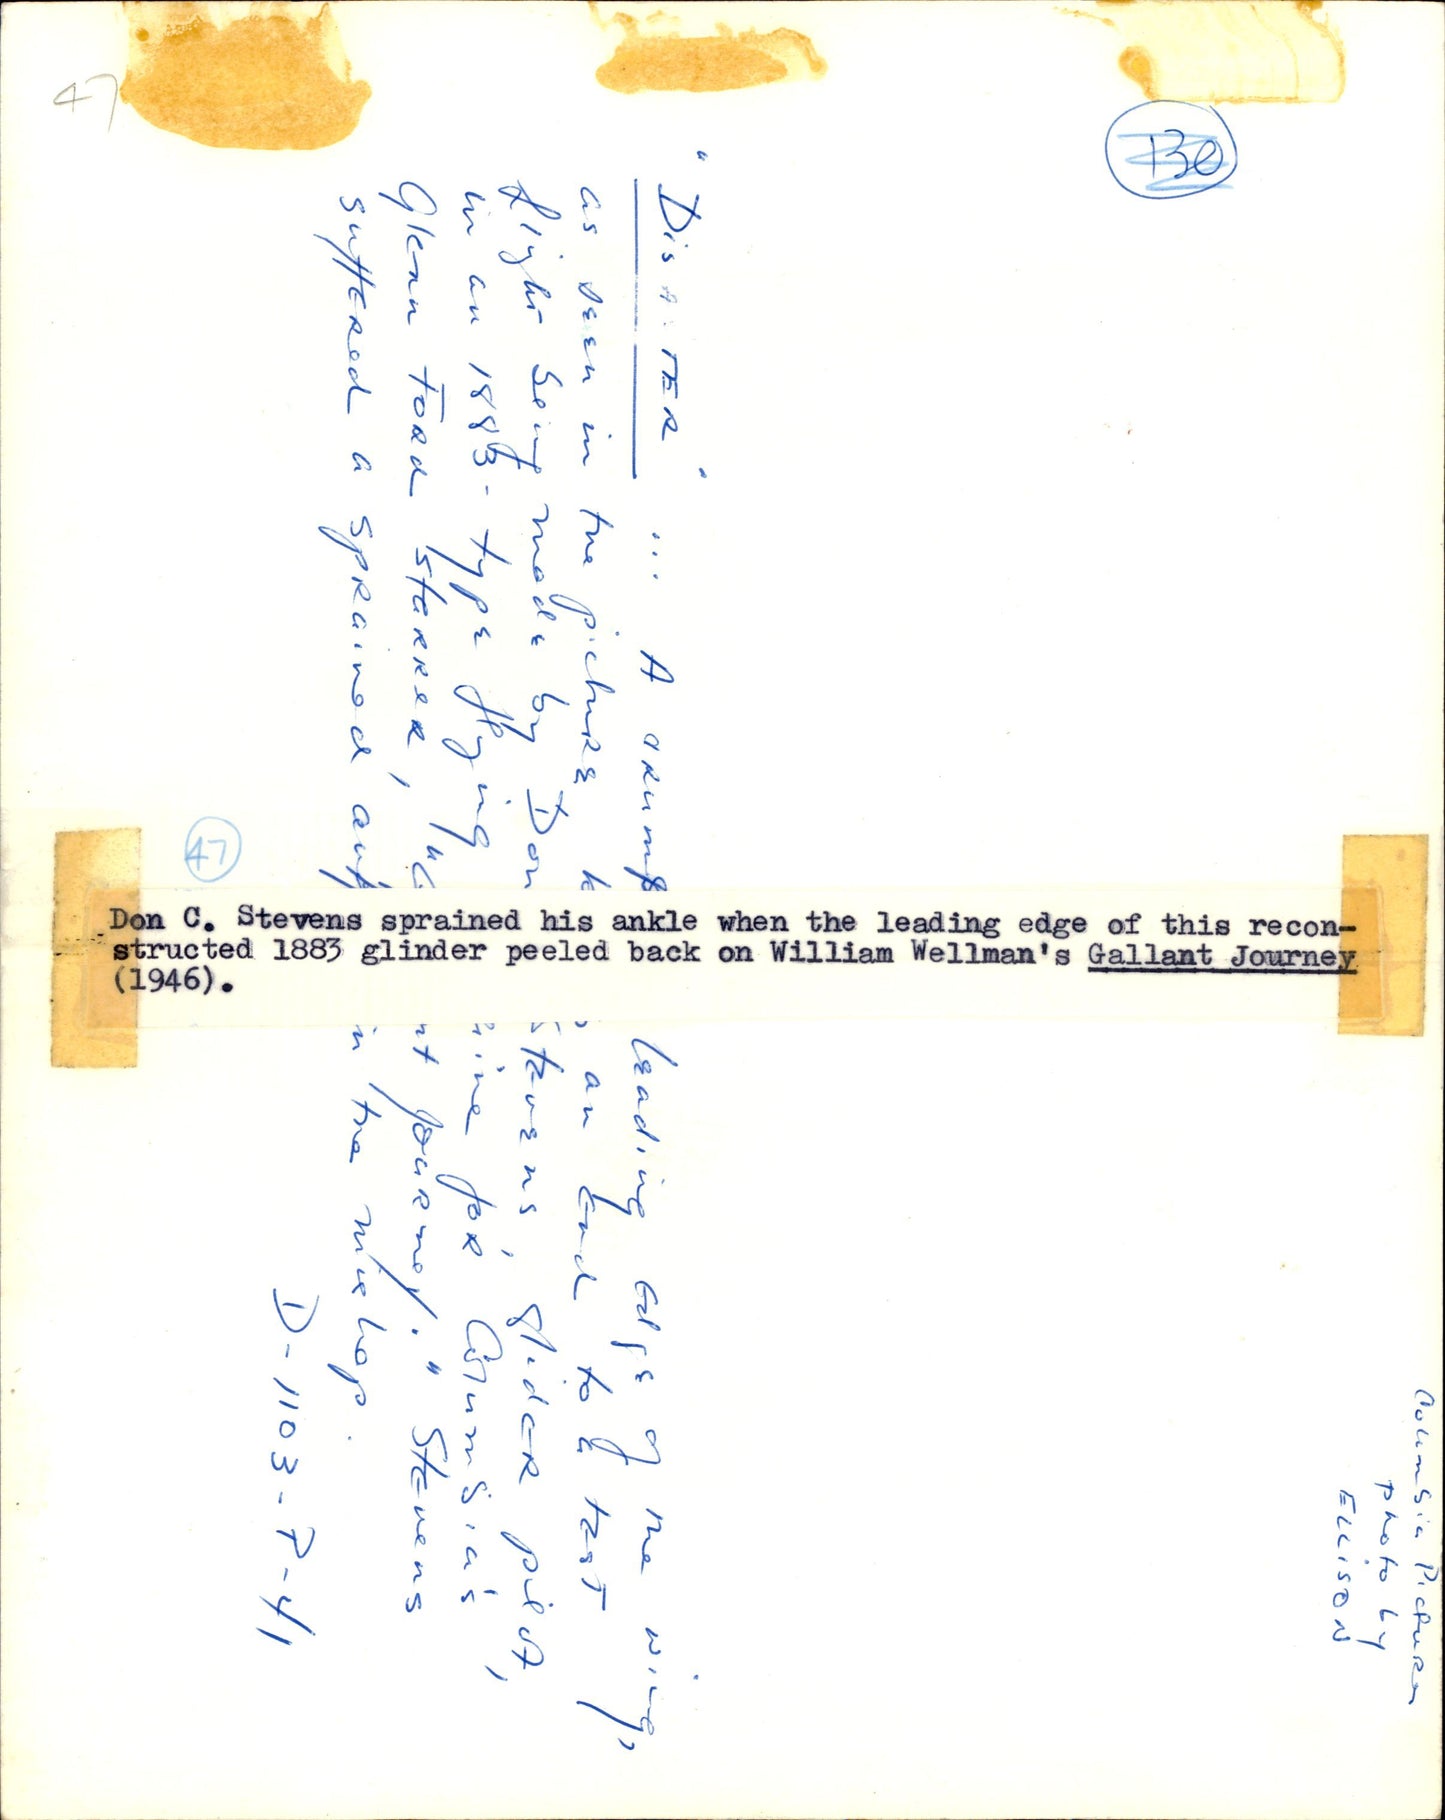 47
130
"Disaster" ... A leading edge of the wing,
as seen in the picture an end to a test
flight being made by Don Stevens, glider pilot,
in an 1883-type flying for Columbia's
Glenn Ford starrer, journey." Stevens
suffered a sprained in the mishap.
D-1103-P-41
47
Don C. Stevens sprained his ankle when the leading edge of this recon-
structed 1883 glinder peeled back on William Wellman's Gallant Journey
(1946).
Columbia Pictures
Photo by
ELLISON